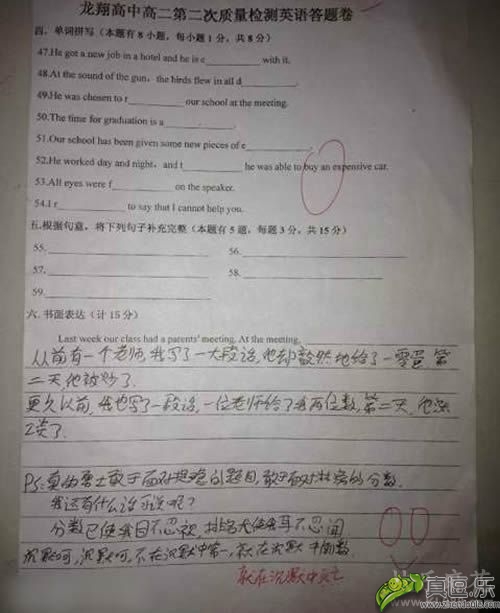 龙翔高中高二第二次质量检测英语答题卷
四. 单词拼写（本题有 8 小题，每小题 1 分，共 8 分）
47.He got a new job in a hotel and he is c__________ with it.
48.At the sound of the gun，the birds flew in all d__________.
49.He was chosen to r__________ our school at the meeting.
50.The time for graduation is a__________.
51.Our school has been given some new pieces of e__________.
52.He worked day and night，and t__________ he was able to buy an expensive car.
53.All eyes were f__________ on the speaker.
54.I r__________ to say that I cannot help you.
五.根据句意，将下列句子补充完整（本题有 5 题，每题 3 分，共 15 分）
55. 56.
57. 58.
59.
六. 书面表达（计 15 分）
Last week our class had a parents' meeting. At the meeting,
从前有一个老师,我写了一大段话,他却毅然地给了一零蛋,第
二天他被炒了.
更久以前,我也写了一段话,一位老师给了我两位数,第二天,他涨
工资了.
PS:真的勇士敢于面对 的题目,敢于面对 的分数.
我还有什么话可说呢?
分数已使我目不忍视,排名尤使我耳不忍闻
沉默呵,沉默呵,不在沉默中第一,就在沉默中
就在沉默中灭亡
00